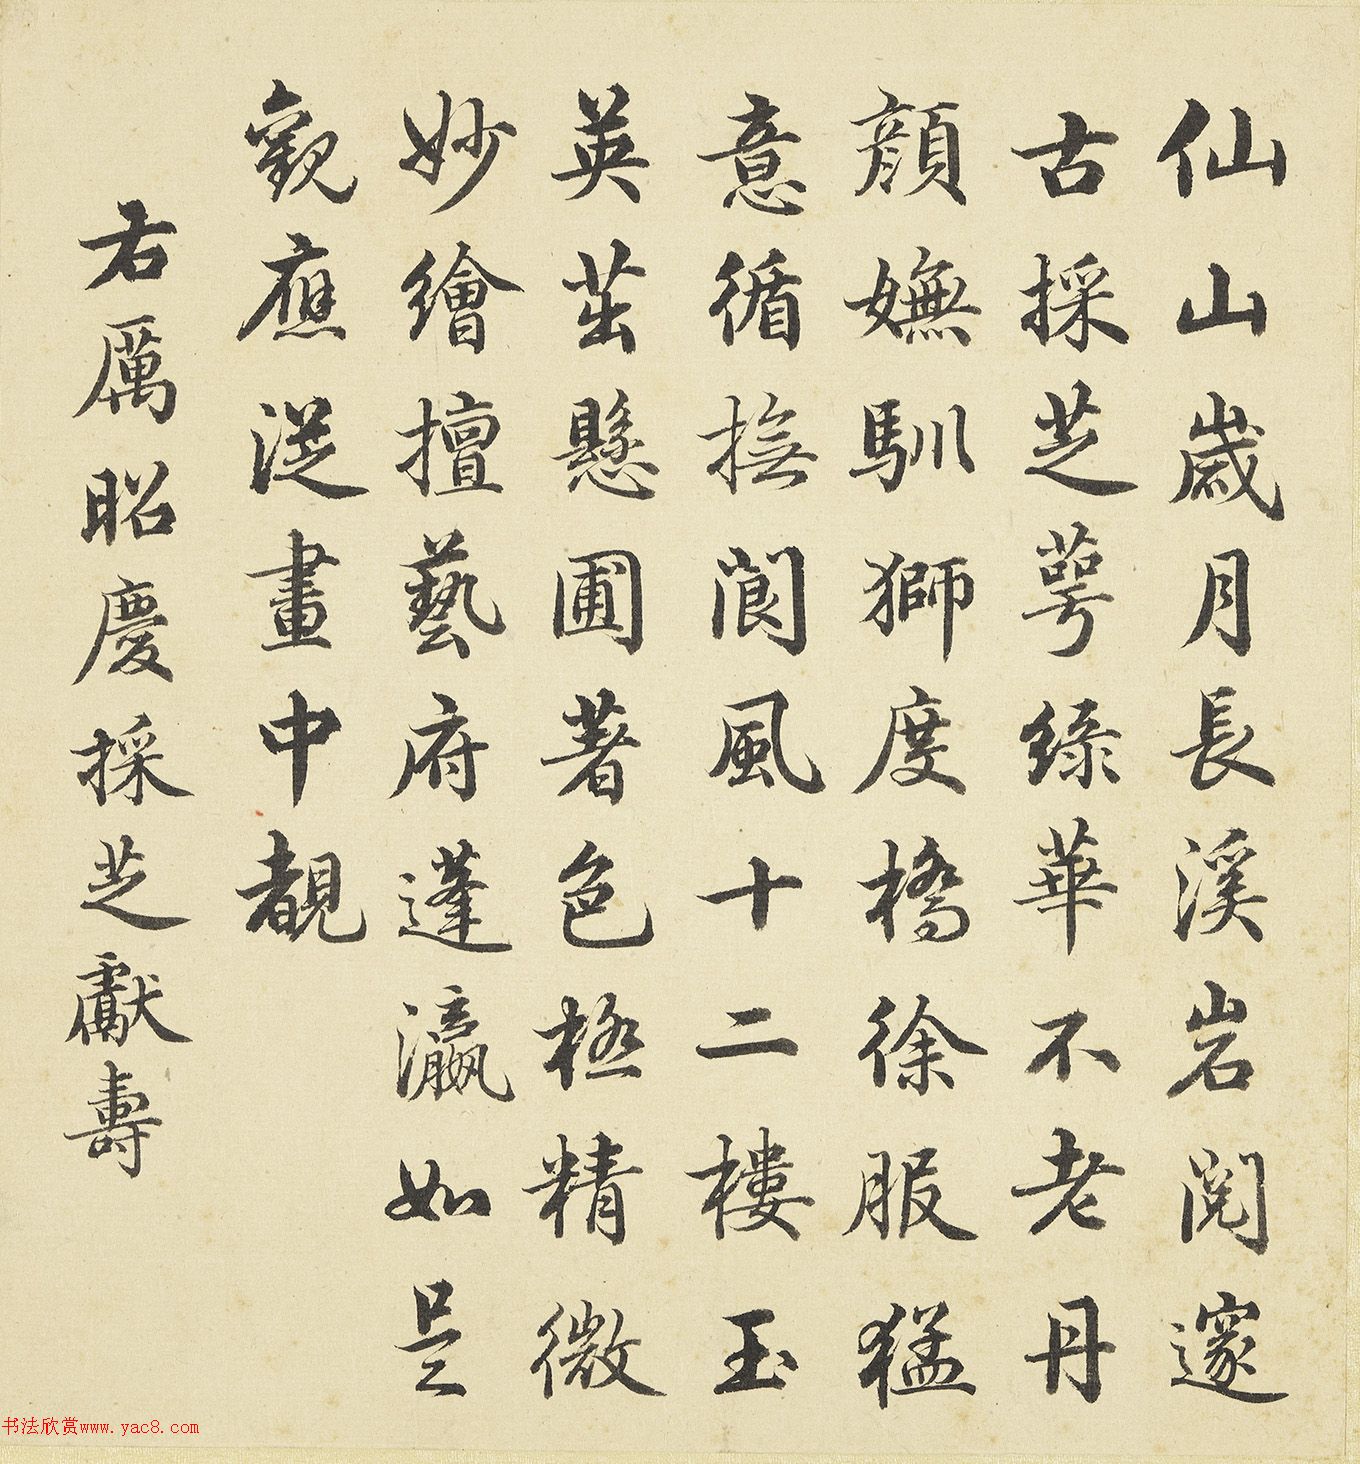 仙山歲月長溪岩閱邃
古採芝萼綠華不老丹
顏嫵馴獅度橋徐服猛
意循撫閬風十二樓玉
英茁懸圃著色極精微
妙繪擅藝府蓬瀛如是
觀應從畫中覩
右厲昭慶採芝獻壽
书法欣赏www.yac8.com